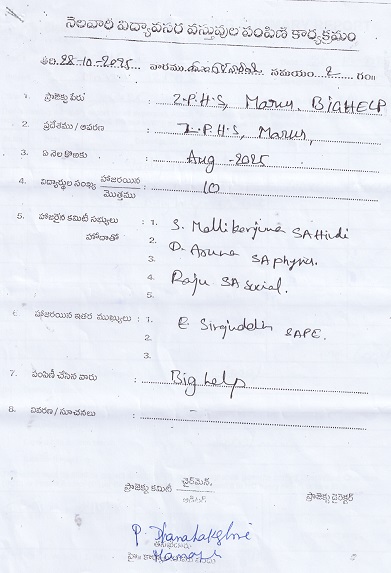 నెలవారి విద్యావసర వస్తువుల పంపిణి కార్యక్రమం
తేది. 28-10-2025 వారము మంగళవారం సమయం 2 గం॥
1. ప్రాజెక్టు పేరు : Z.P.H.S, Marur, BIGHELP
2. ప్రదేశము / ఆవరణ : Z.P.H.S, Marur,
3. ఏ నెల కొఱకు : Aug -2025
4. విద్యార్థుల సంఖ్య హాజరయిన / మొత్తము : 10
5. హాజరైన కమిటీ సభ్యులు : 1. S. Mallikarjuna SA Hindi
హోదాతో 2. D. Aruna SA phys.
3.
4. Raju SA Social.
5.
6. హాజరయిన ఇతర ముఖ్యులు : 1. E Sirajuddin SAPE.
2.
3.
7. పంపిణీ చేసిన వారు : Big help
8. వివరణ / సూచనలు : -
ప్రాజెక్టు కమిటీ చైర్‌మెన్. ప్రాజెక్టు డైరెక్టర్
ఆడిటర్
P. Dhanalakshmi
Manager